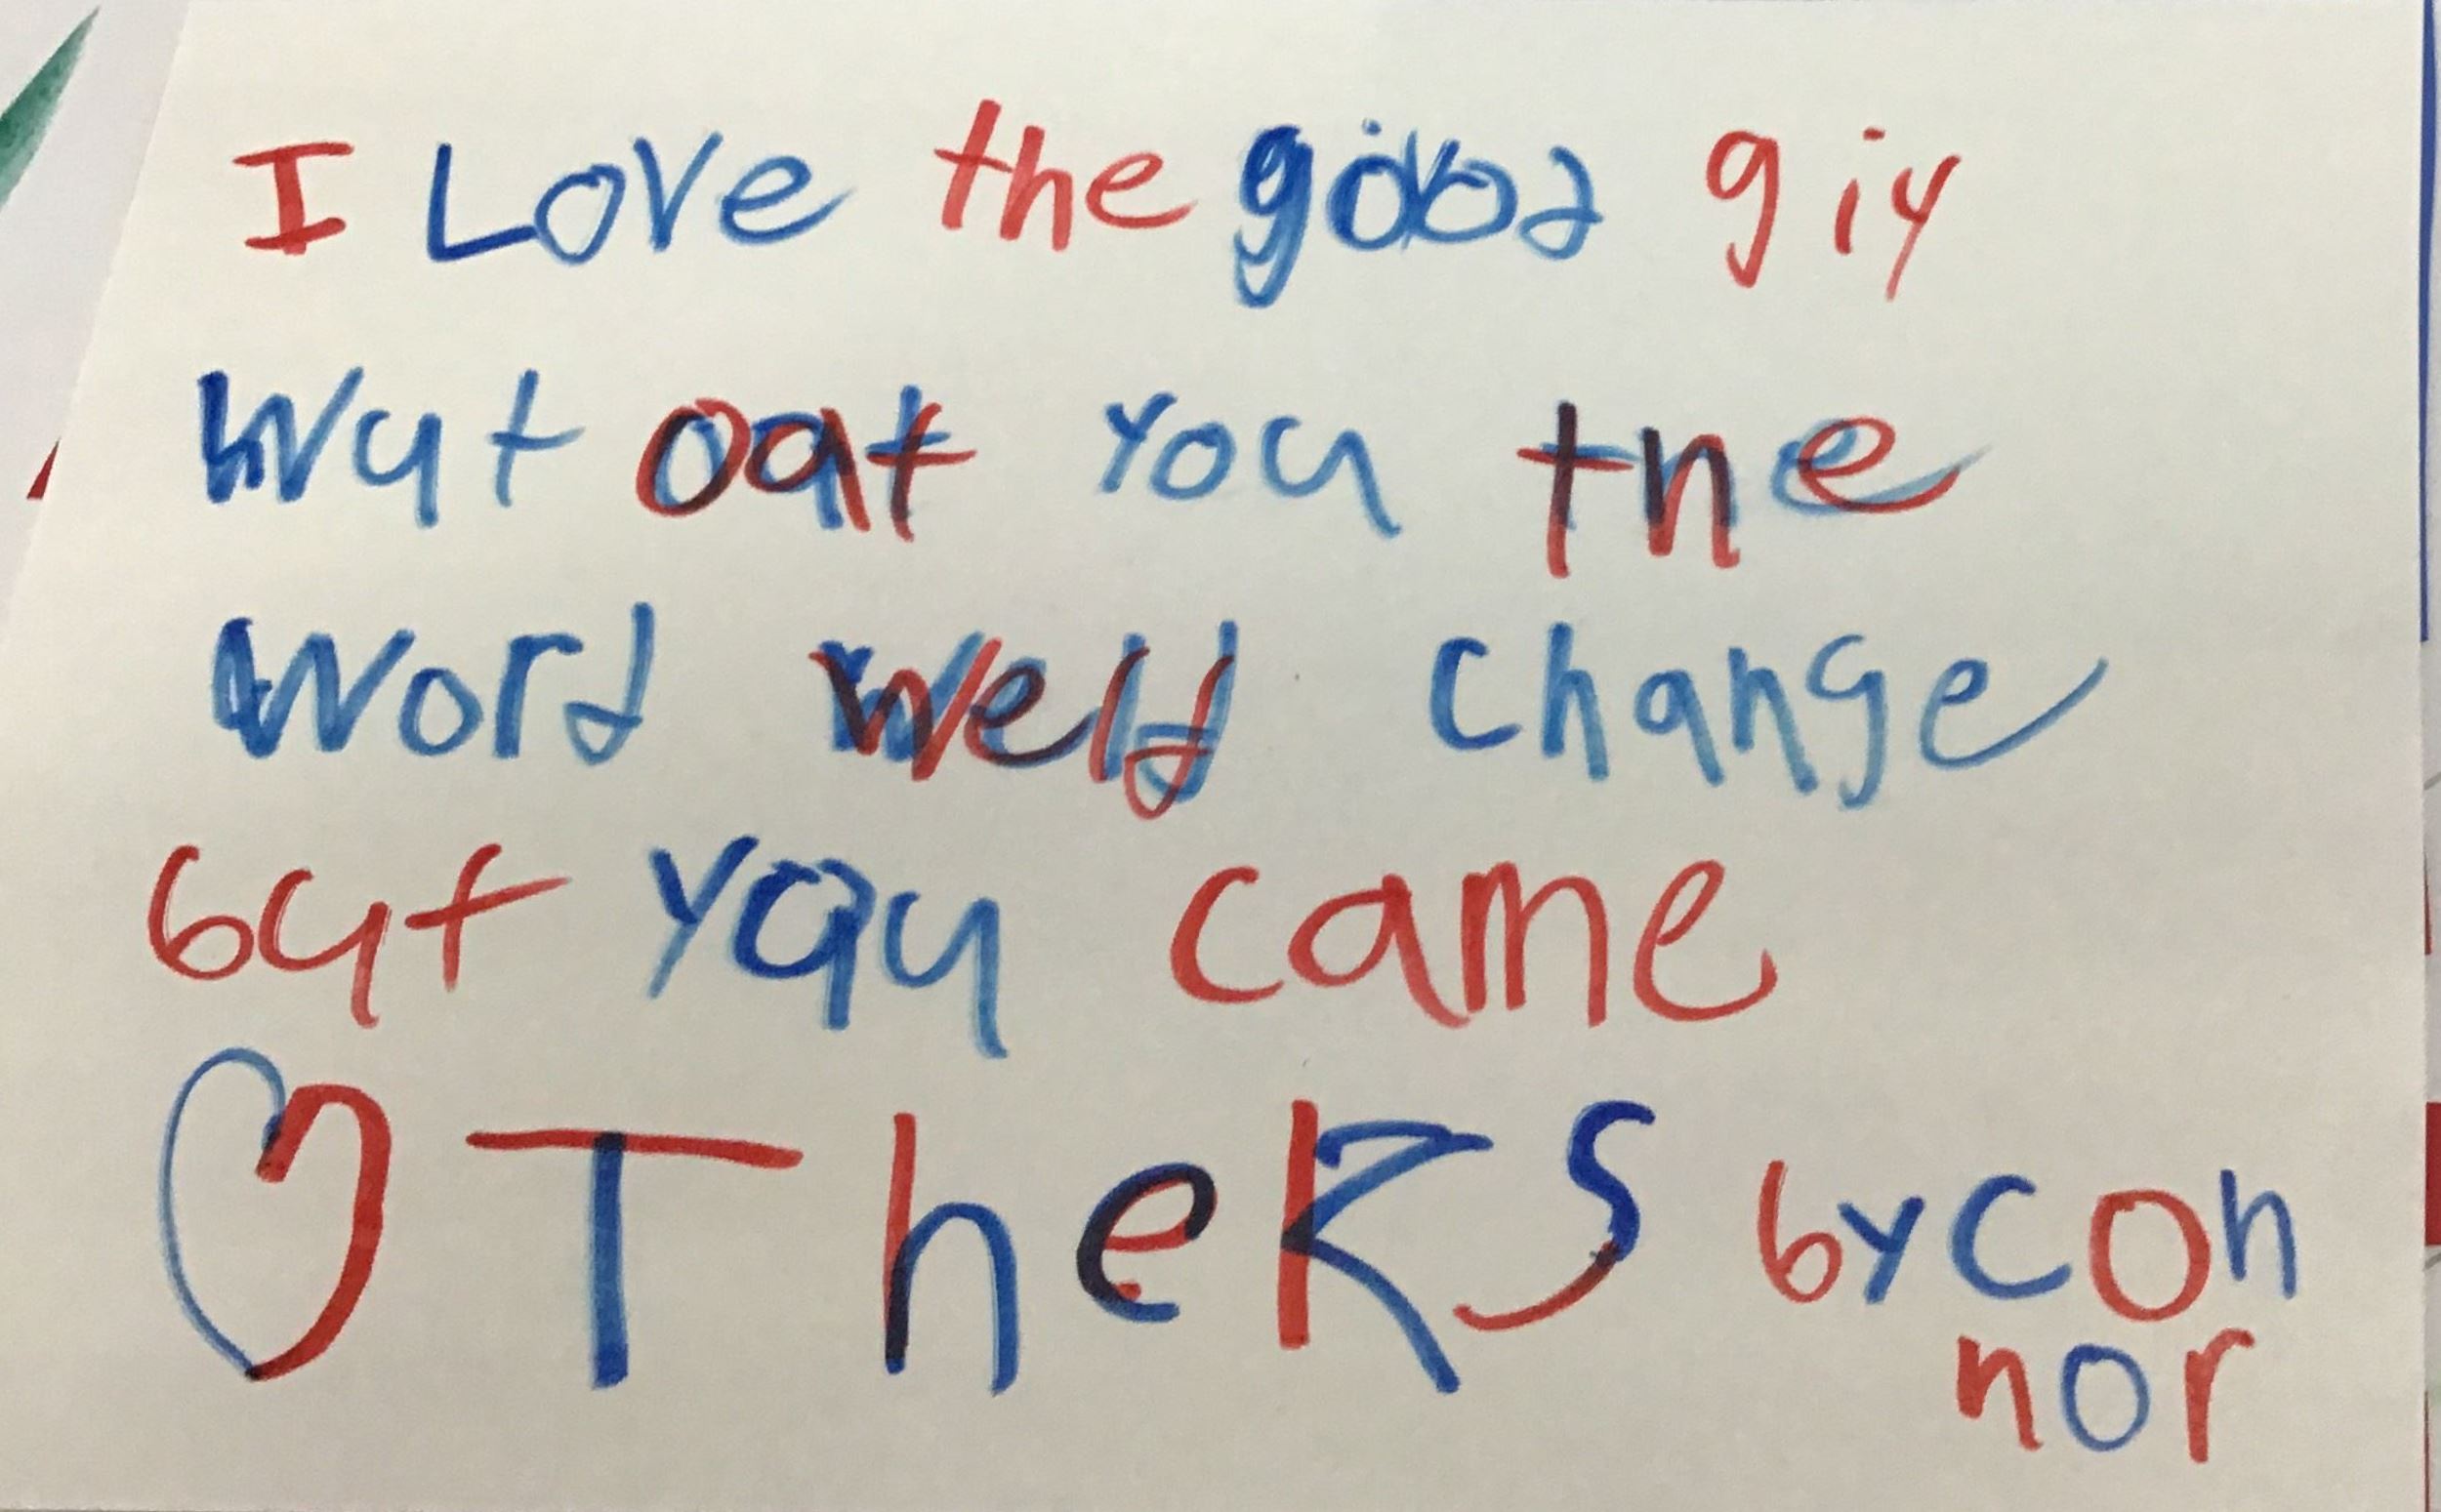 I Love the good giy
wut oat you the
word weld change
but you came
♡ Theks by con
nor